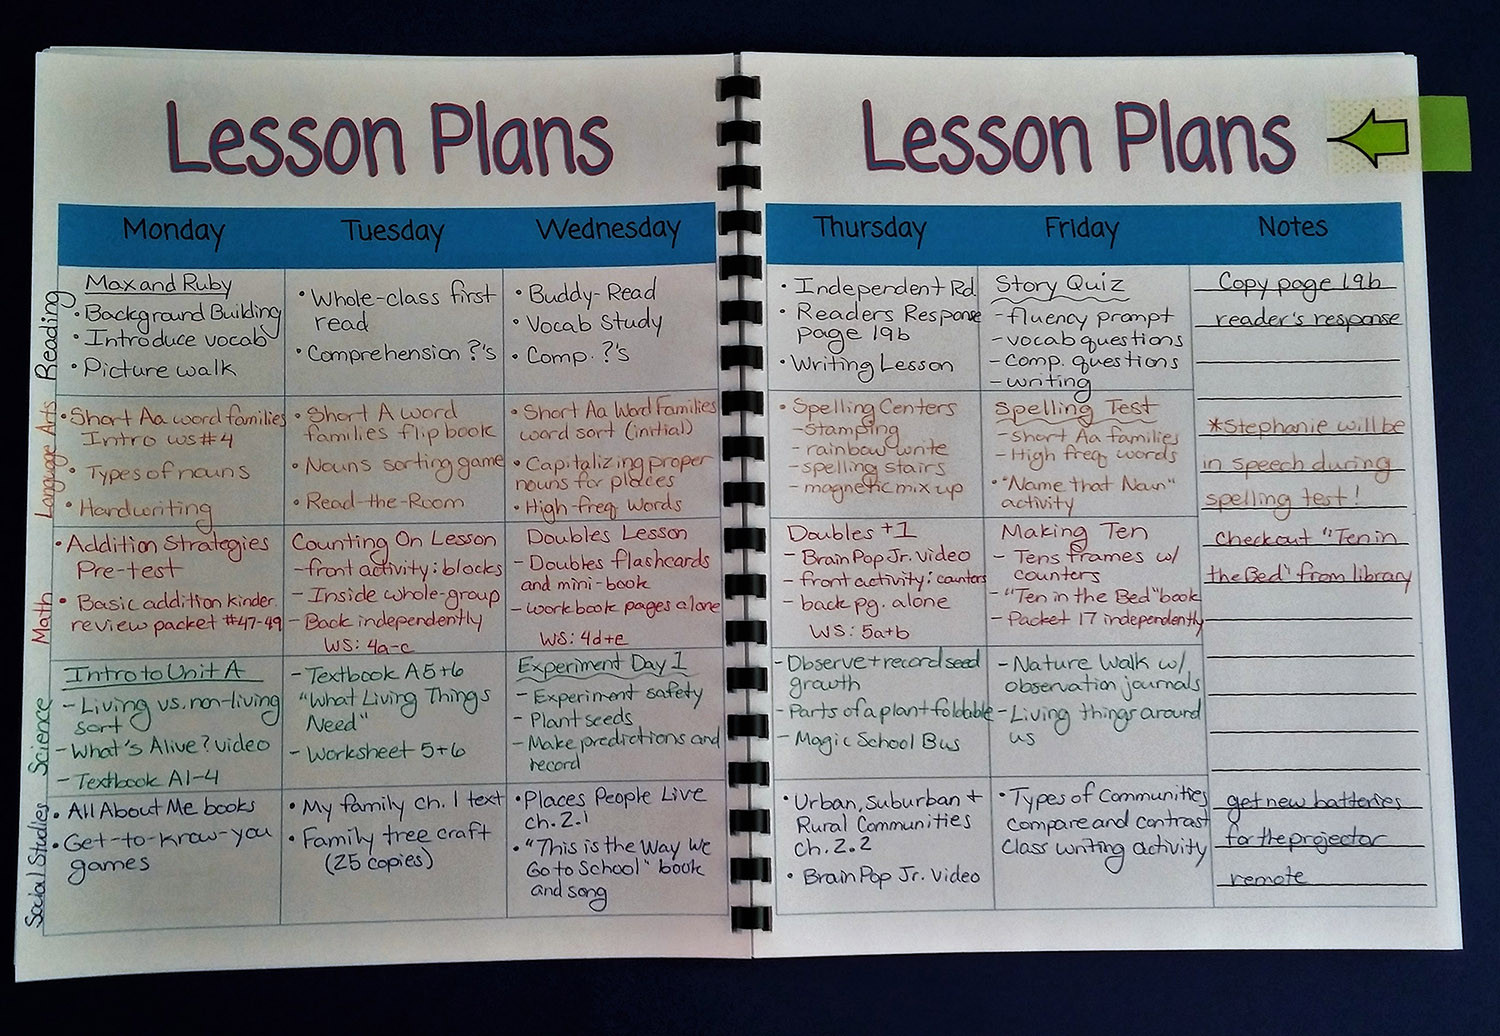 Lesson Plans
Monday
Tuesday
Wednesday
Reading
Max and Ruby
• Background Building
• Introduce vocab
• Picture walk
• Whole-class first
read
• Comprehension ?'s
• Buddy-Read
• Vocab Study
• Comp. ?'s
Language Arts
• Short Aa word families
Intro ws #4
• Types of nouns
• Handwriting
• Short A word
families flip book
• Nouns sorting game
• Read-the-Room
• Short Aa Word Families
word sort (initial)
• Capitalizing proper
nouns for places
• High-freq words
Math
• Addition Strategies
Pre-test
• Basic addition kinder.
review packet #47-49
Counting On Lesson
- front activity: blocks
- Inside whole-group
- Back independently
WS: 4a-c
Doubles Lesson
- Doubles flashcards
and mini-book
- workbook pages alone
WS: 4d+e
Science
Intro to Unit A
- Living vs. non-living
sort
- What's Alive? video
- Textbook A1-4
- Textbook A5+6
"What Living Things
Need"
- Worksheet 5+6
Experiment Day 1
- Experiment safety
- Plant seeds
- Make predictions and
record
Social Studies
• All About Me books
• Get-to-know-you
games
• My family ch. 1 text
• Family tree craft
(25 copies)
• Places People Live
ch. 2.1
• "This is the Way We
Go to School" book
and song
Lesson Plans
Thursday
Friday
Notes
• Independent Rd.
• Readers Response
page 19b
• Writing Lesson
Story Quiz
- fluency prompt
- vocab questions
- comp. questions
- writing
Copy page 19b
reader's response
• Spelling Centers
- stamping
- rainbow write
- spelling stairs
- magnetic mix up
Spelling Test
- short Aa families
- High freq words
• "Name that Noun"
activity
*Stephanie will be
in speech during
spelling test!
Doubles +1
- BrainPop Jr. video
- front activity: counters
- back pg. alone
WS: 5a+b
Making Ten
- Tens frames w/
counters
- "Ten in the Bed" book
- Packet 17 independently
Checkout "Ten in
the Bed" from library
- Observe + record seed
growth
- Parts of a plant foldable
- Magic School Bus
- Nature Walk w/
observation journals
- Living things around
us
• Urban, Suburban +
Rural Communities
ch. 2.2
• BrainPop Jr. Video
• Types of Communities
compare and contrast
class writing activity
get new batteries
for the projector
remote